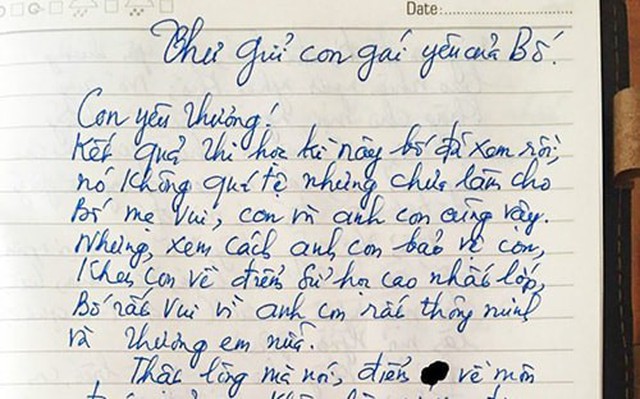 Date:
Thư gửi con gái yêu của Bố.
Con yêu thương!
Kết quả thi học kì này bố đã xem rồi,
nó không quá tệ nhưng chưa làm cho
Bố mẹ vui, con và anh con cũng vậy.
Nhưng, xem cách anh con bảo vệ con,
khen con về điểm Sử học cao nhất lớp,
Bố rất vui vì anh con rất thông minh
và thương em nữa.
Thật lòng mà nói, điểm về môn